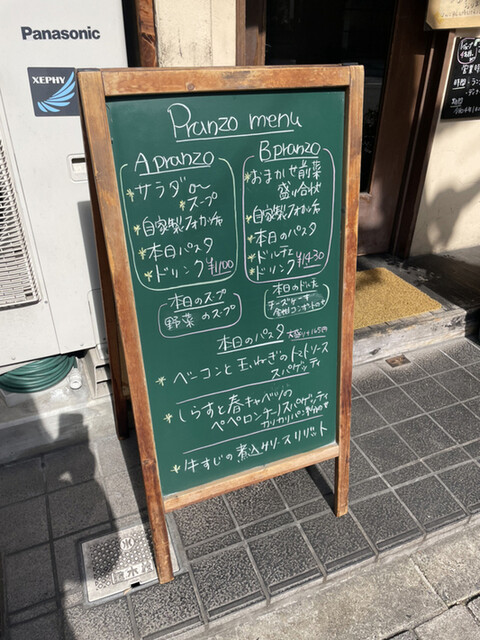 Panasonic
XEPHY
Pranzo menu
A pranzo
サラダ or
スープ
自家製フォカッチャ
本日のパスタ
ドリンク ¥1100
B pranzo
おまかせ前菜
盛り合わせ
自家製フォカッチャ
本日のパスタ
ドルチェ
ドリンク ¥1430
本日のスープ
野菜のスープ
本日のドルチェ
チーズケーキ
本日のパスタ
ベーコンと玉ねぎのトマトソース
スパゲッティ
しらすと春キャベツの
ペペロンチーノスパゲッティ
カリカリパン粉
牛すじの煮込みソースリゾット